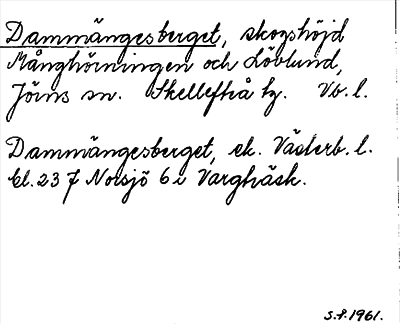 Dammängesberget, skogshöjd
Månghörningen och Lövlund,
Jörns sn. Skellefteå tg. Vb. l.
Dammängesberget, ek. Västerb. l.
bl. 23 J Norsjö 6 i Vargbäck.
S.f. 1961.